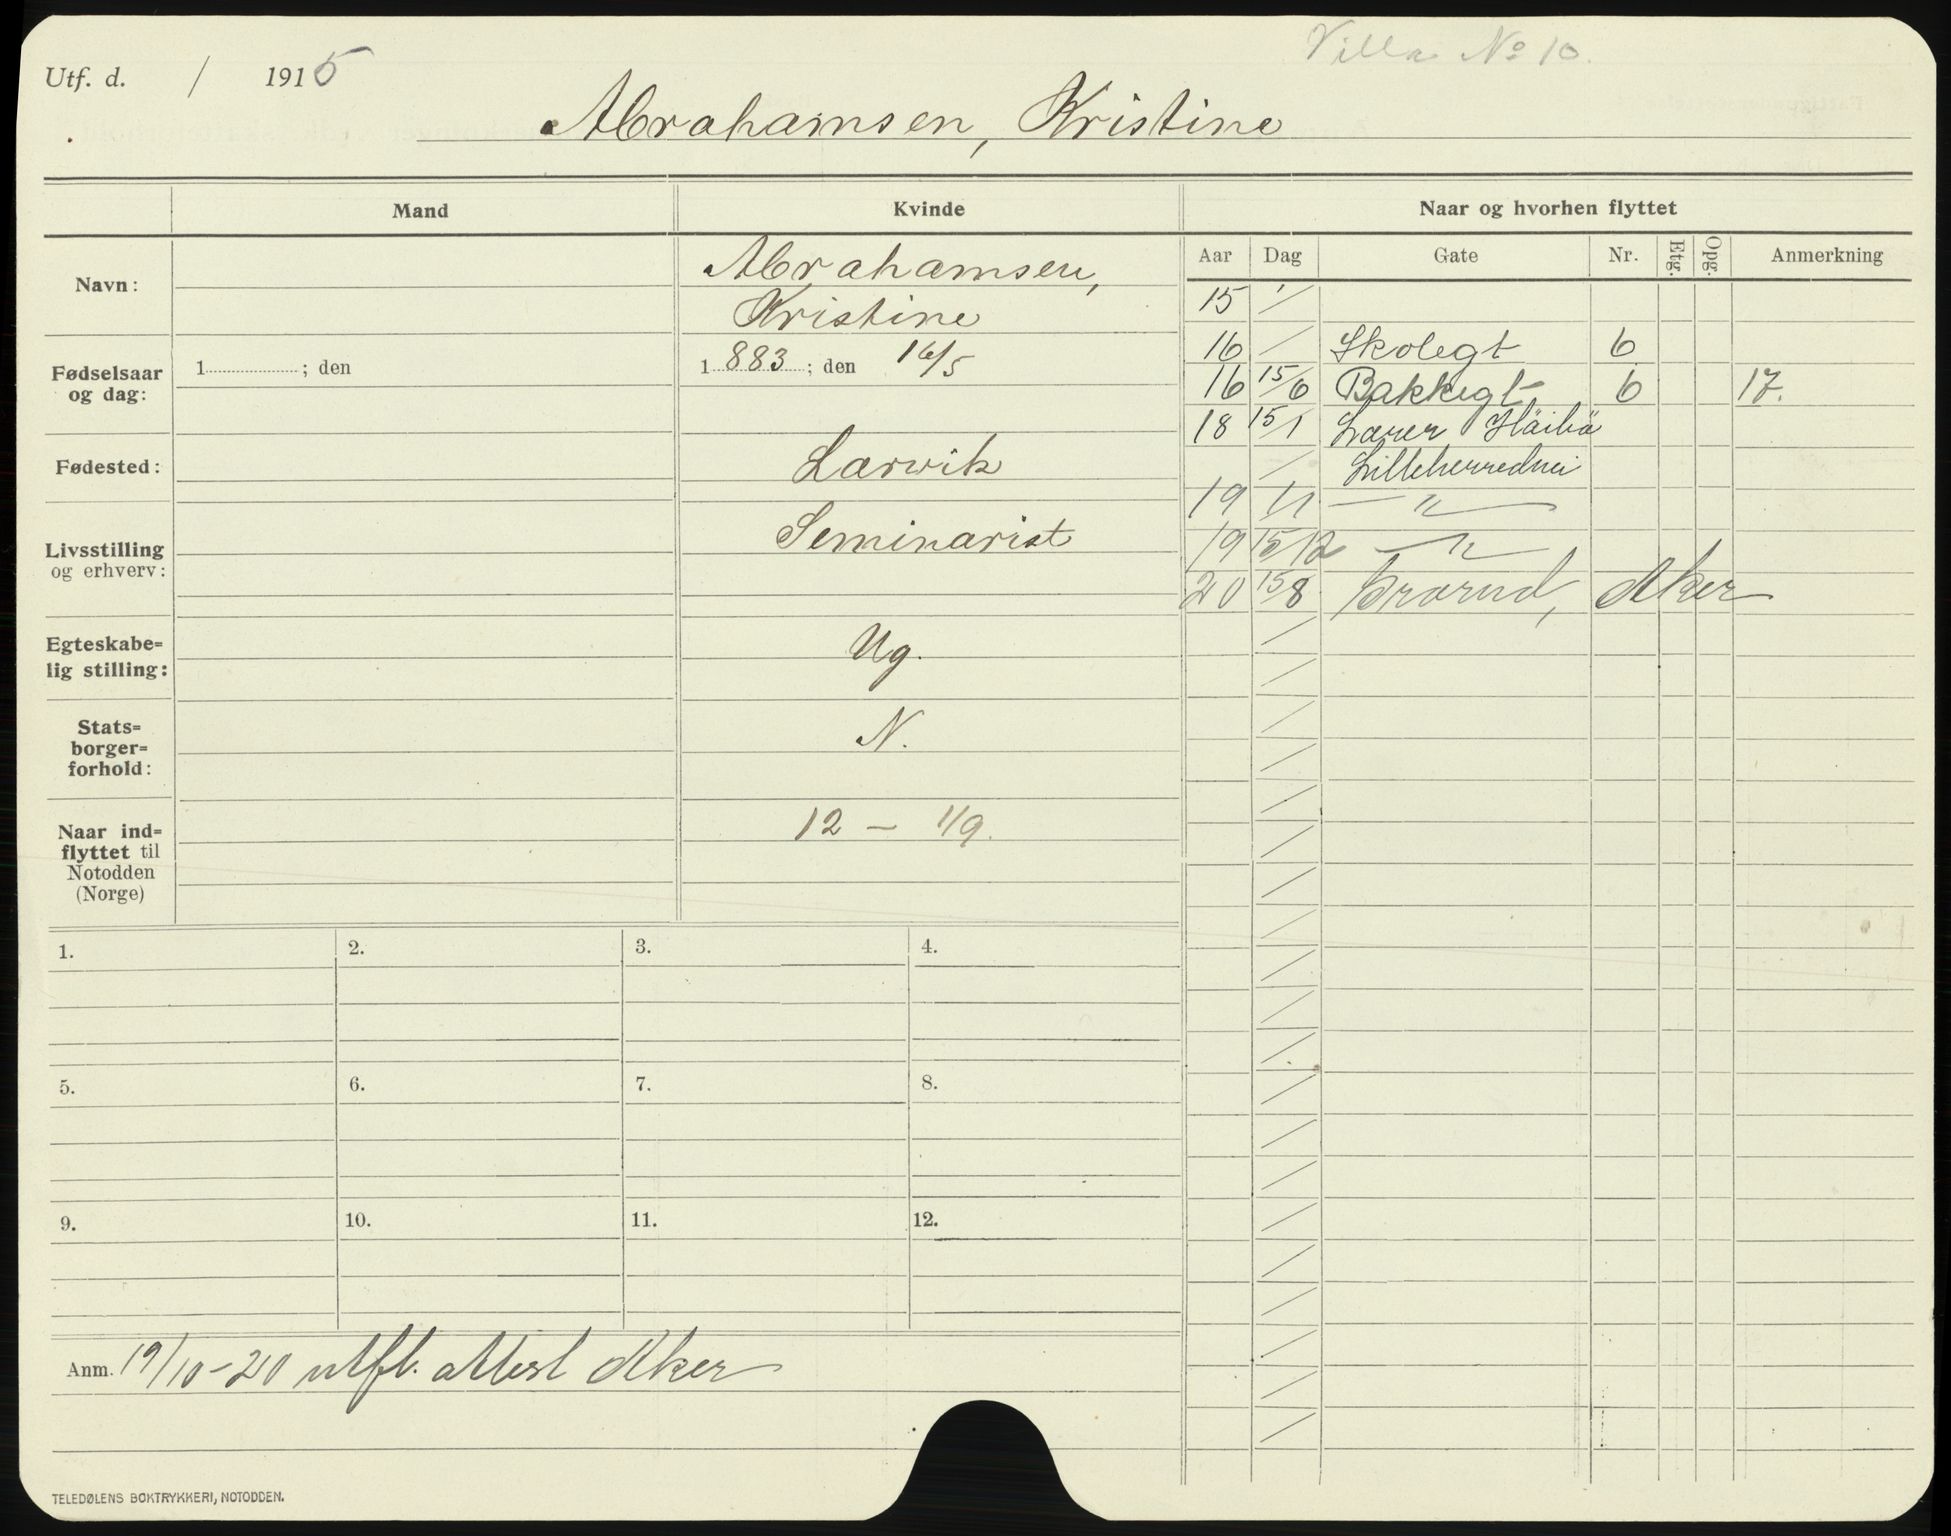 Villa No 10.
Utf. d. / 1915
Abrahamsen, Kristine
Mand Kvinde Naar og hvorhen flyttet
Aar Dag Gate Nr. Etg. Opg. Anmerkning
Navn: Abrahamsen,
Kristine
Fødselsaar og dag: 1 ; den 1 883 ; den 16/5
Fødested: Larvik
Livsstilling og erhverv: Seminarist
Egteskabe=
lig stilling: Ug.
Stats=
borger=
forhold: N.
Naar ind=
flyttet til
Notodden
(Norge) 12 — 1/9.
15 /
16 / Skolegt 6
16 15/6 Bakkegt 6 17.
18 15/1 Lærer
/ Lilleherredvei
19 1/1 — " —
19 15/12 — " —
20 15/8 Aker
1. 2. 3. 4.
5. 6. 7. 8.
9. 10. 11. 12.
Anm. 19/10-20 utfl. attest Aker
TELEDØLENS BOKTRYKKERI, NOTODDEN.